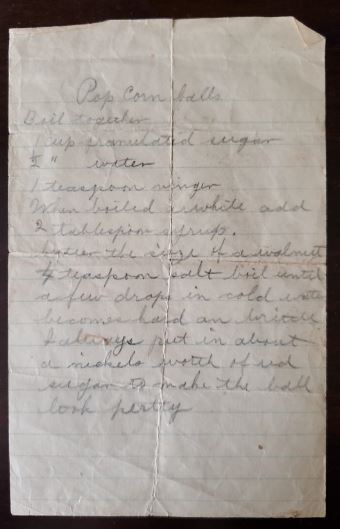 Pop Corn balls
Boil together
1 cup granulated sugar
" water
1 teaspoon vinger
When boiled a while add
2 tablespoon syrup.
butter the size of a walnut
teaspoon salt boil until
a few drops in cold water
becomes hard an brittle
I always put in about
a nickels worth of red
sugar to make the ball
look pertty